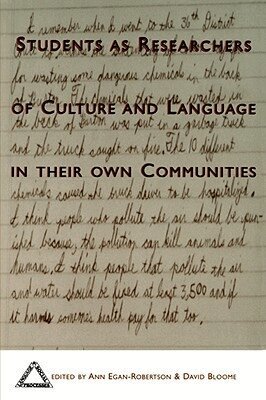 I remember when I went to the 36th District
STUDENTS AS RESEARCHERS
for wasting some dangerous chemicals in the back
OF CULTURE AND LANGUAGE
the back of Barton was put in a garbage truck
and the truck caught on fire. The 10 different
IN THEIR OWN COMMUNITIES
chemicals caused the truck driver to be hospitalized.
I think people who pollute the air should be pun-
ished because, the pollution can kill animals and
humans. I think people that pollute the air
and water should be fined at least 3,500 and if
it harms someones health pay for that too.
EDITED BY ANN EGAN-ROBERTSON & DAVID BLOOME